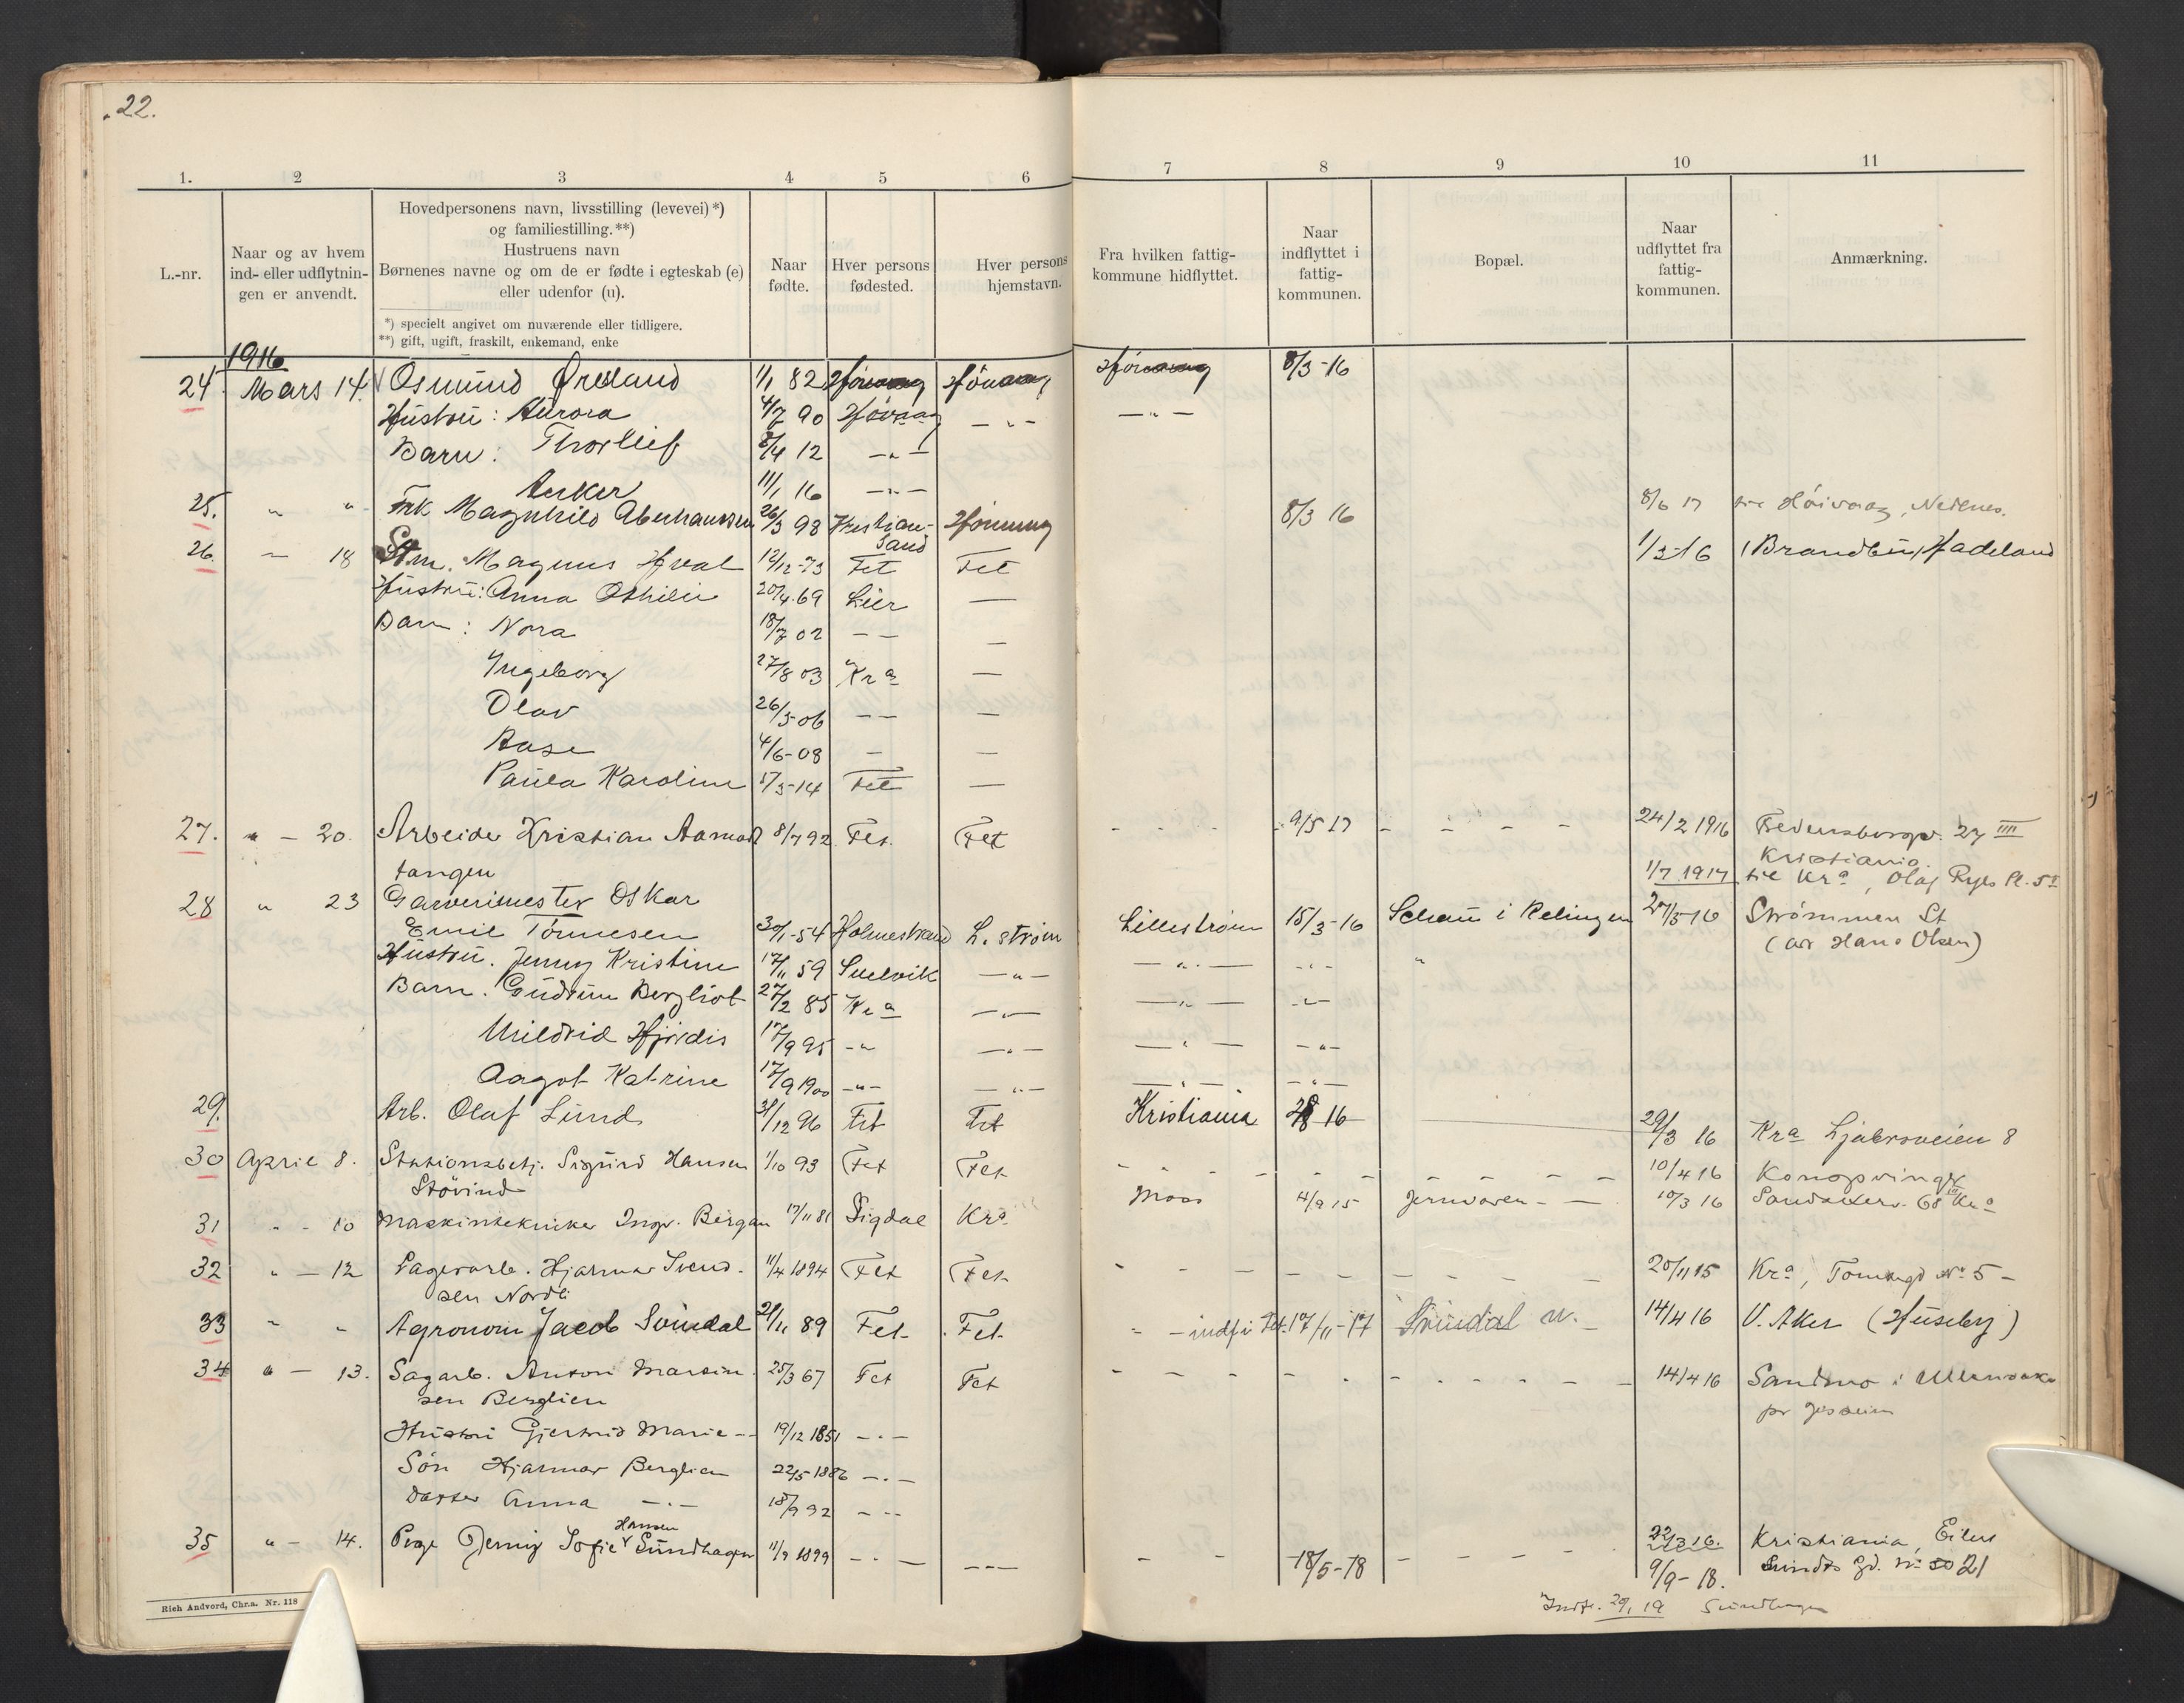 22.
1. 2 3 4 5 6 7 8 9 10 11
L.-nr.
Naar og av hvem
ind- eller udflytnin-
gen er anvendt.
Hovedpersonens navn, livsstilling (levevei) *)
og familiestilling. **)
Hustruens navn
Børnenes navne og om de er fødte i egteskab (e)
eller udenfor (u).
*) specielt angivet om nuværende eller tidligere.
**) gift, ugift, fraskilt, enkemand, enke
Naar
fødte.
Hver persons
fødested.
Hver persons
hjemstavn.
Fra hvilken fattig-
kommune hidflyttet.
Naar
indflyttet i
fattig-
kommunen.
Bopæl.
Naar
udflyttet fra
fattig-
kommunen.
Anmærkning.
1916
24 Mars 14. Osmund 1/1 82 8/3-16
Hustru: Aurora 4/7 90 Høvaag - " - - " -
Barn: Thorleif 8/4 12 - " -
Anker 11/1 16 - " -
25. " " Frk Magnhild 26/3 98 Kristian-sand 8/3 16 8/6 17 Høivaag, Nedenes.
26. - 18 Magnus Hval 12/12-73 Fet Fet 1/3-16 (Brandbu, Hadeland
Hustru: Anna Othilie 20/4.69 Lier —
Barn: Nora 18/7 02 - - —
Ingeborg 27/8 03 Kra —
Olav 26/5-06 - - —
Aase 4/6-08 - —
Paula Karoline 17/3-14 Fet —
27. " - 20. Arbeider Kristian Aamod 8/7 92 Fet. Fet - - - 9/5 17 - - - - 24/2 1916 Fredensborgv. 27 IIII
tangen Kristiania.
1/7 1917 til Kra, Olaf Ryes Pl. 5
28 " 23 Garverimester Oskar
Emil Tønnesen 30/1-54 Holmestrand L. strøm Lillestrøm 15/3-16 i Relingen 27/3-16 Strømmen St
(av Hans Olsen)
Hustru. Jenny Kristine 17/11 59 Svelvik - " - - " - - " - "
Barn. Gudrun Bergliot 27/2 85 Kra - " - - " - - " -
Mildrid Hjørdis 17/9 95 - " - " - - " - - " -
Aagot Katrine 17/9 1900 - " - - " - - " - - " -
29. Arb. Olaf Lund 31/12 96 Fet Fet Kristiania 16 29/3 16 Kra Ljabroveien 8
30 April 8. Stationsbetj. Sigurd Hansen 1/10 93 Fet Fet - - - - - - - 10/4 16 Kongsvinger
Støvind
31 - - 10 Maskintekniker Ingv. Bergan 17/11 81 Sigdal Kra Moss 4/9 15 Jernvaren - - 10/3 16 Sandakerv. 68 Kra
32 " - 12 Papirarb. Hjalmar Svend- 11/4 1894 Fet Fet - - - - - - - 20/11 15 Kra, No 5 -
sen Nordli
33 " " Agronom Jacob Svindal 21/11 89 Fet Fet - - indfl i Fet. 17/11-17 Svindal n. 14/4 16 V. Aker (Huseby)
34 " - 13. Sagarb. Anton Martin- 25/3 67 Fet Fet - - - - - - - 14/4 16 Sandmo i Ullensaker
sen Berglien pr Jesheim
Hustru Gjertrud Marie - - 19/12 1851 - " -
Søn Hjalmar Berglien 22/5 1886 - " -
Datter Anna - " - 18/9 92 - - -
35 " - 14. Pige Jenny Sofie Hansen Sundhagen 11/9 1899 - " - - - - - - 18/5-18 - - - - 22/3 16. Kristiania, Eilert
9/9-18. Sundts Gd. No 21
Indfl. 29/1 19 Sundhagen
Rich Andvord, Chr.a. Nr. 118